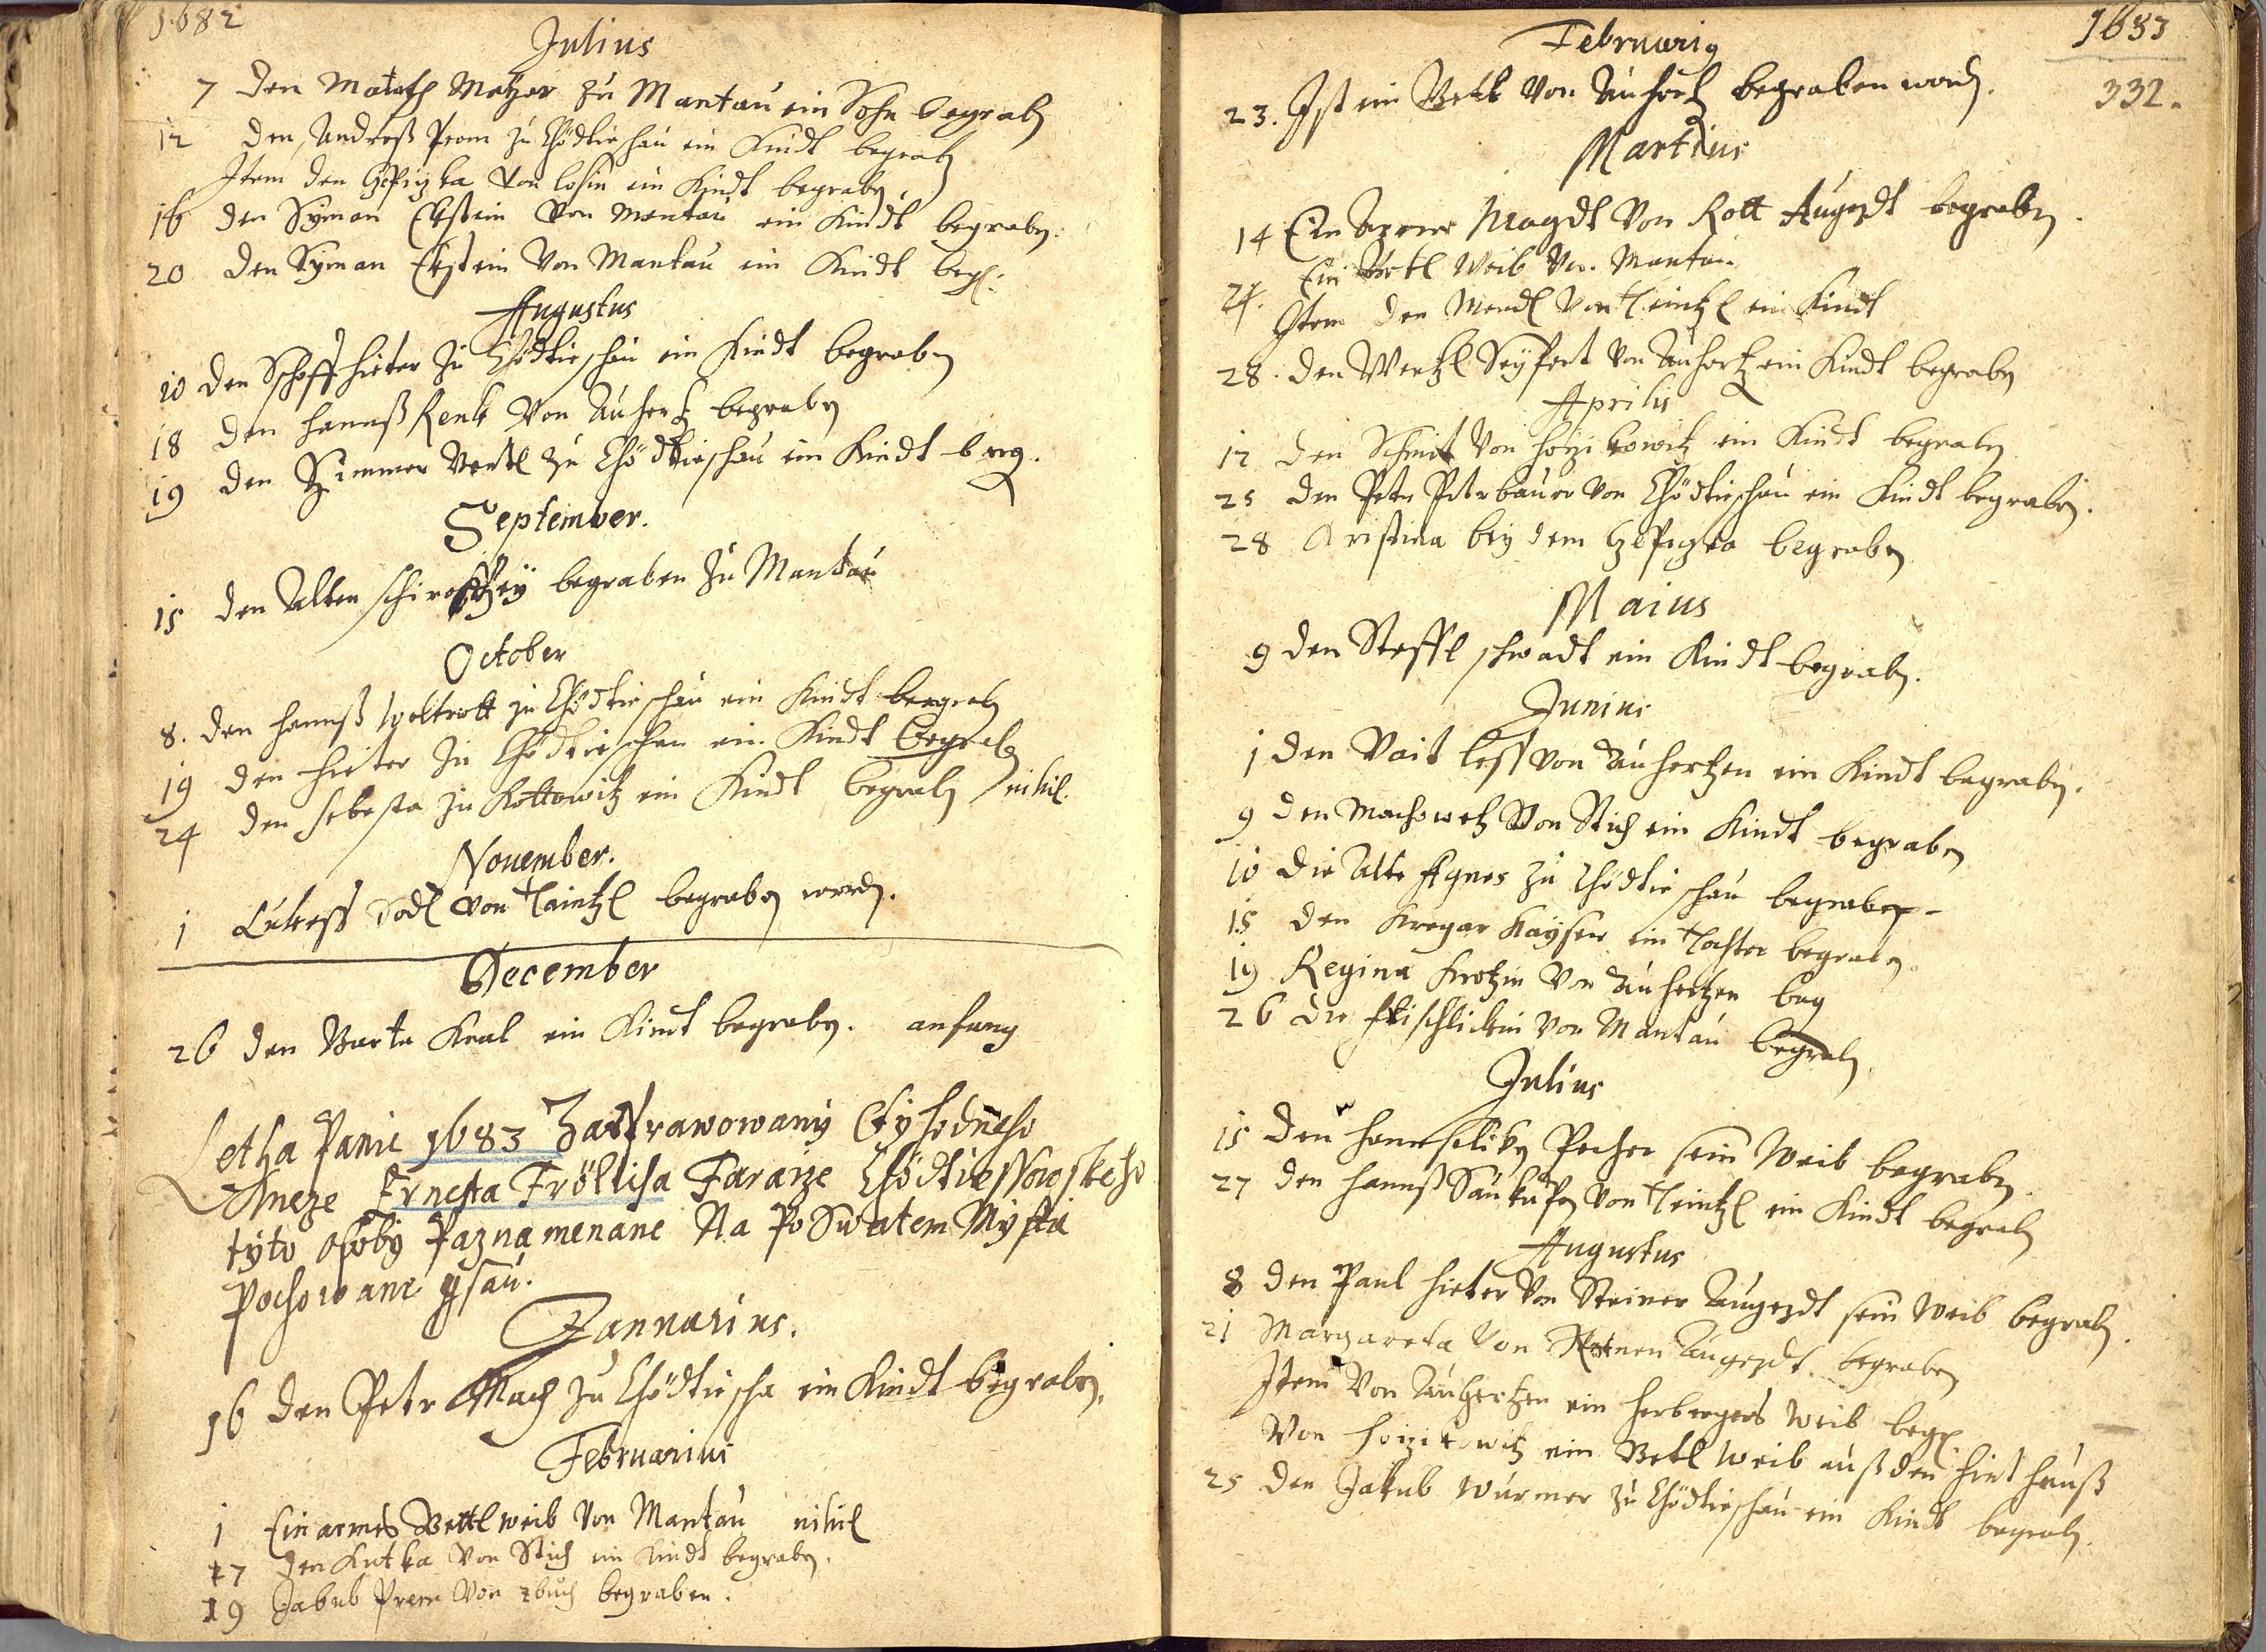 1682
Julius
7 den Matath Metzer zu Mantau ein Sohn begrabn
12 den Andreß Prom zu Chödtieschau ein Kindt begrabn
Item den von Losin ein Kindt begrabn.
16 den Syman Ekstein von Mantau ein Kindt begrabn.
20 den Syman Ekstein von Mantau ein Kindt begr:
Augustus
10 den Schoffhieter zu Chödtieschau ein Kindt begrabn
18 den Hannß Renk von Auhertz begrabn
19 den Zimmer zu Chödtieschau ein Kindt begr.
September.
15 den Alten begraben zu Mantau
October
8. den Hannß Woltrott zu Chödtieschau ein Kindt begrabn
19 den Hieter zu Chödtieschau ein Kindt begrabn
24 den Sebesta zu Kottowitz ein Kindt begrabn nihil.
November.
1 Sodl von Taintzl begrabn wordn.
December
26 den Barta Kral ein Kindt begrabn. anfang
Letha Panie 1683 Za Sprawowany Cztyhodneho
Kneze Ernesta Frölicha Fararze Chödtiessowskeho
tyto osoby Paznamenane Na Po Swatem Mystie
Pochowane gsau.
Januarius.
16 den Petr Mach zu Chödtiescha ein Kindt begrabn.
Februarius
1 Ein armes Bettl weib von Mantau nihil
17 den Kutka von Stich ein Kindt begrabn.
19 Jakub Prem von Zbuch begraben.
1683
332.
Februarig
23. Ist ein von Auhertz begraben wordn.
Martius
14 Ein Magdt von Rott Augezdt begrabn.
Ein Betl Weib von Mantau
24. Item den Mendl von Teintzl ein Kindt
28. den Wentzl Seyfert von Auhertz ein Kindt begrabn
Aprilis
12 den Schmit von Horzikowitz ein Kindt begrabn
25 den Petr Petrbauer von Chödtieschau ein Kindt begrabn.
28 Kristina bey dem begrabn
Maius
9 den Steffl schwadt ein Kindt begrabn.
Junius
1 den Vait less von Auhertzen ein Kindt begrabn.
9 den Machowetz von Stich ein Kindt begrabn
10 die Alte Agnes zu Chödtieschau begrabn
15 den Kregar Kayser ein Tochter begrabn
19 Regina Krotzin von Auhertzen beg
26 die von Mantau begrabn
Julius
15 den Pecher sein Weib begrabn.
27 den Hannß von Teintzl ein Kindt begrabn
Augustus
8 den Paul Hieter von Steiner Augezdt sein Weib begrabn.
21 Margareta von Augezdt begraben
Item von Auhertzen ein Herbergers Weib begr
Von Horzikowitz ein Betl Weib auß den Hiet Hauß
25 den Jakub Wurmer zu Chödtieschau ein Kindt begrabn.